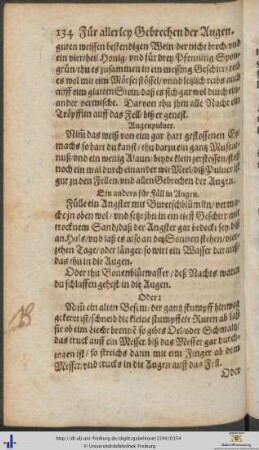 134 Für allerley Gebrechen der Augen.
guten weissen bestendigen Wein der nicht brech vnd
ein viertheil Honig vnd für drey Pfenning Spon-
grün thu es zusammen in ein messing Geschirr reib
es wol mit eim Mörsel stössel vnnd letzlich reibs auch
auff eim glatten Stein daß es sich gar wol durch ein-
ander vermische. Darvon thu jhm alle Nacht ein
Tröpfflin auff das Fell biß er genest.
Augenpuluer.
Nim das weiß von eim gar hart gesottenen Ey
machs so hart du kanst thu darzu ein gantz Muscat-
nuß vnd ein wenig Alaun beyde klein gestossen stoß
noch ein mal durch einander wie Meel diß Puluer ist
gut zu den Fellen vnd allen Gebrechen der Augen.
Ein anders für Fäll in Augen.
Fülle ein Angster mit
che jn oben wol vnd setz jhn in ein tieff Geschirr mit
trocknem Sand daß der Angster gar bedeckt sey biß
an Halß vnd laß es also an der Sonnen stehen vier-
zehen Tage oder länger so wirt ein Wasser darauß
das thu in die Augen.
Oder thu Bonenblüwasser deß Nachts wann
du schlaffen gehest in die Augen.
Oder:
Nim ein alten Besem der gantz stumpff hinweg
gekeret ist schneid die kleine stumpffete Ruten ab laß
sie ob eim Liecht brennen so gibts Oel oder Schmaltz
das truck auff ein Messer biß das Messer gar durch-
zogen ist so streichs dann mit eim Finger ab dem
Messer vnd trucks in die Augen auff das Fell.
Oder
http://dl.ub.uni-freiburg.de/diglit/gabelkover1594/0154
© Universitätsbibliothek Freiburg